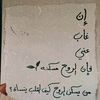 إن
غاب
عني
فإن لروح سكنه
من يسكن لروح كيف لقلب ينساه؟